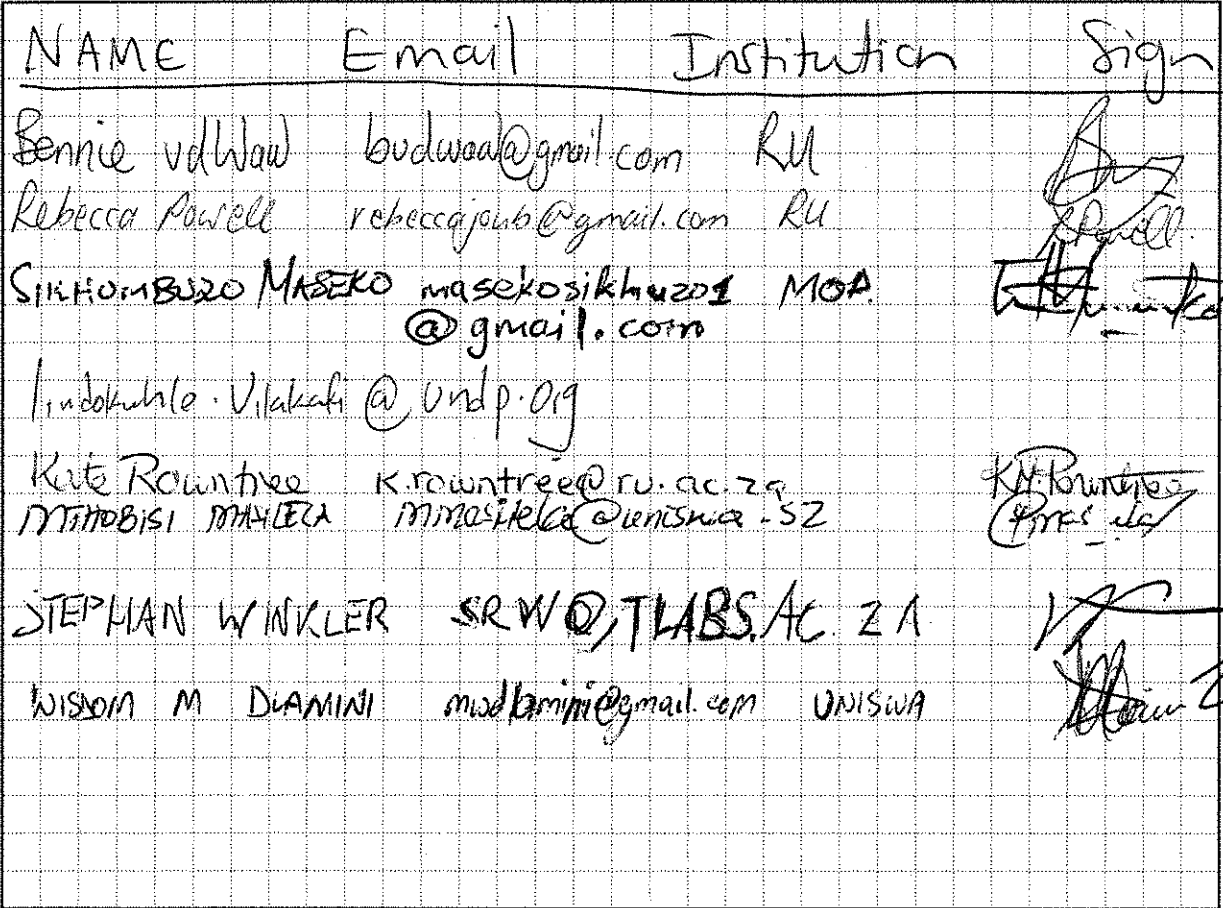 NAME Email Institution Sign
Bennie vdWaal bvdwaal@gmail.com RU
Rebecca Powell rebeccajoub@gmail.com RU RPowell.
SIKHUMBUZO MASEKO masekosikhuzo1 MOA
@gmail.com
lindokuhle.Vilakati@undp.org
Kate Rowntree k.rowntree@ru.ac.za KM.Rowntree
STEPHAN WINKLER SRW@TLABS.AC.ZA
WISDOM M DLAMINI mwdlamini@gmail.com UNISWA